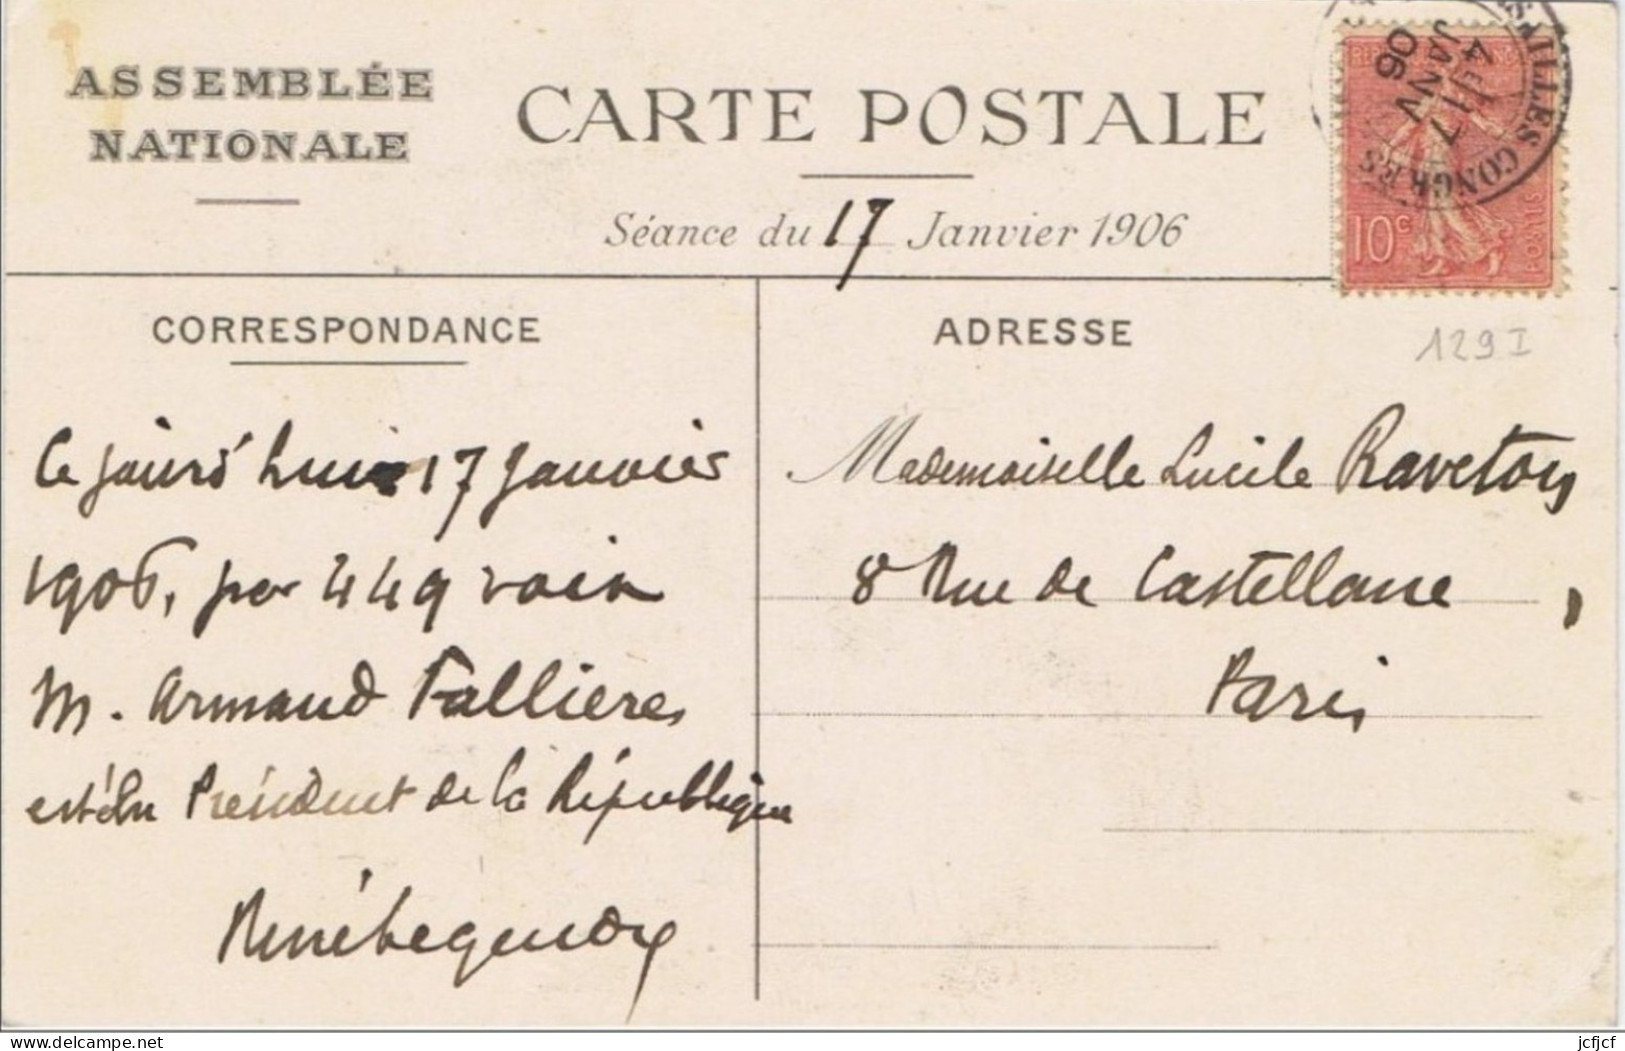 ASSEMBLÉE
NATIONALE
CARTE POSTALE
Séance du 17 Janvier 1906
10c
POSTES
4 E
17
JANV
06
CONGRES
CORRESPONDANCE
Ce jourd'hui 17 Janvier
1906, par 449 voix
M. Armand Fallieres
est élu Président de la République
ADRESSE
129 I
Mademoiselle Lucile Raveton
8 Rue de Castellane,
Paris
jcfjcf